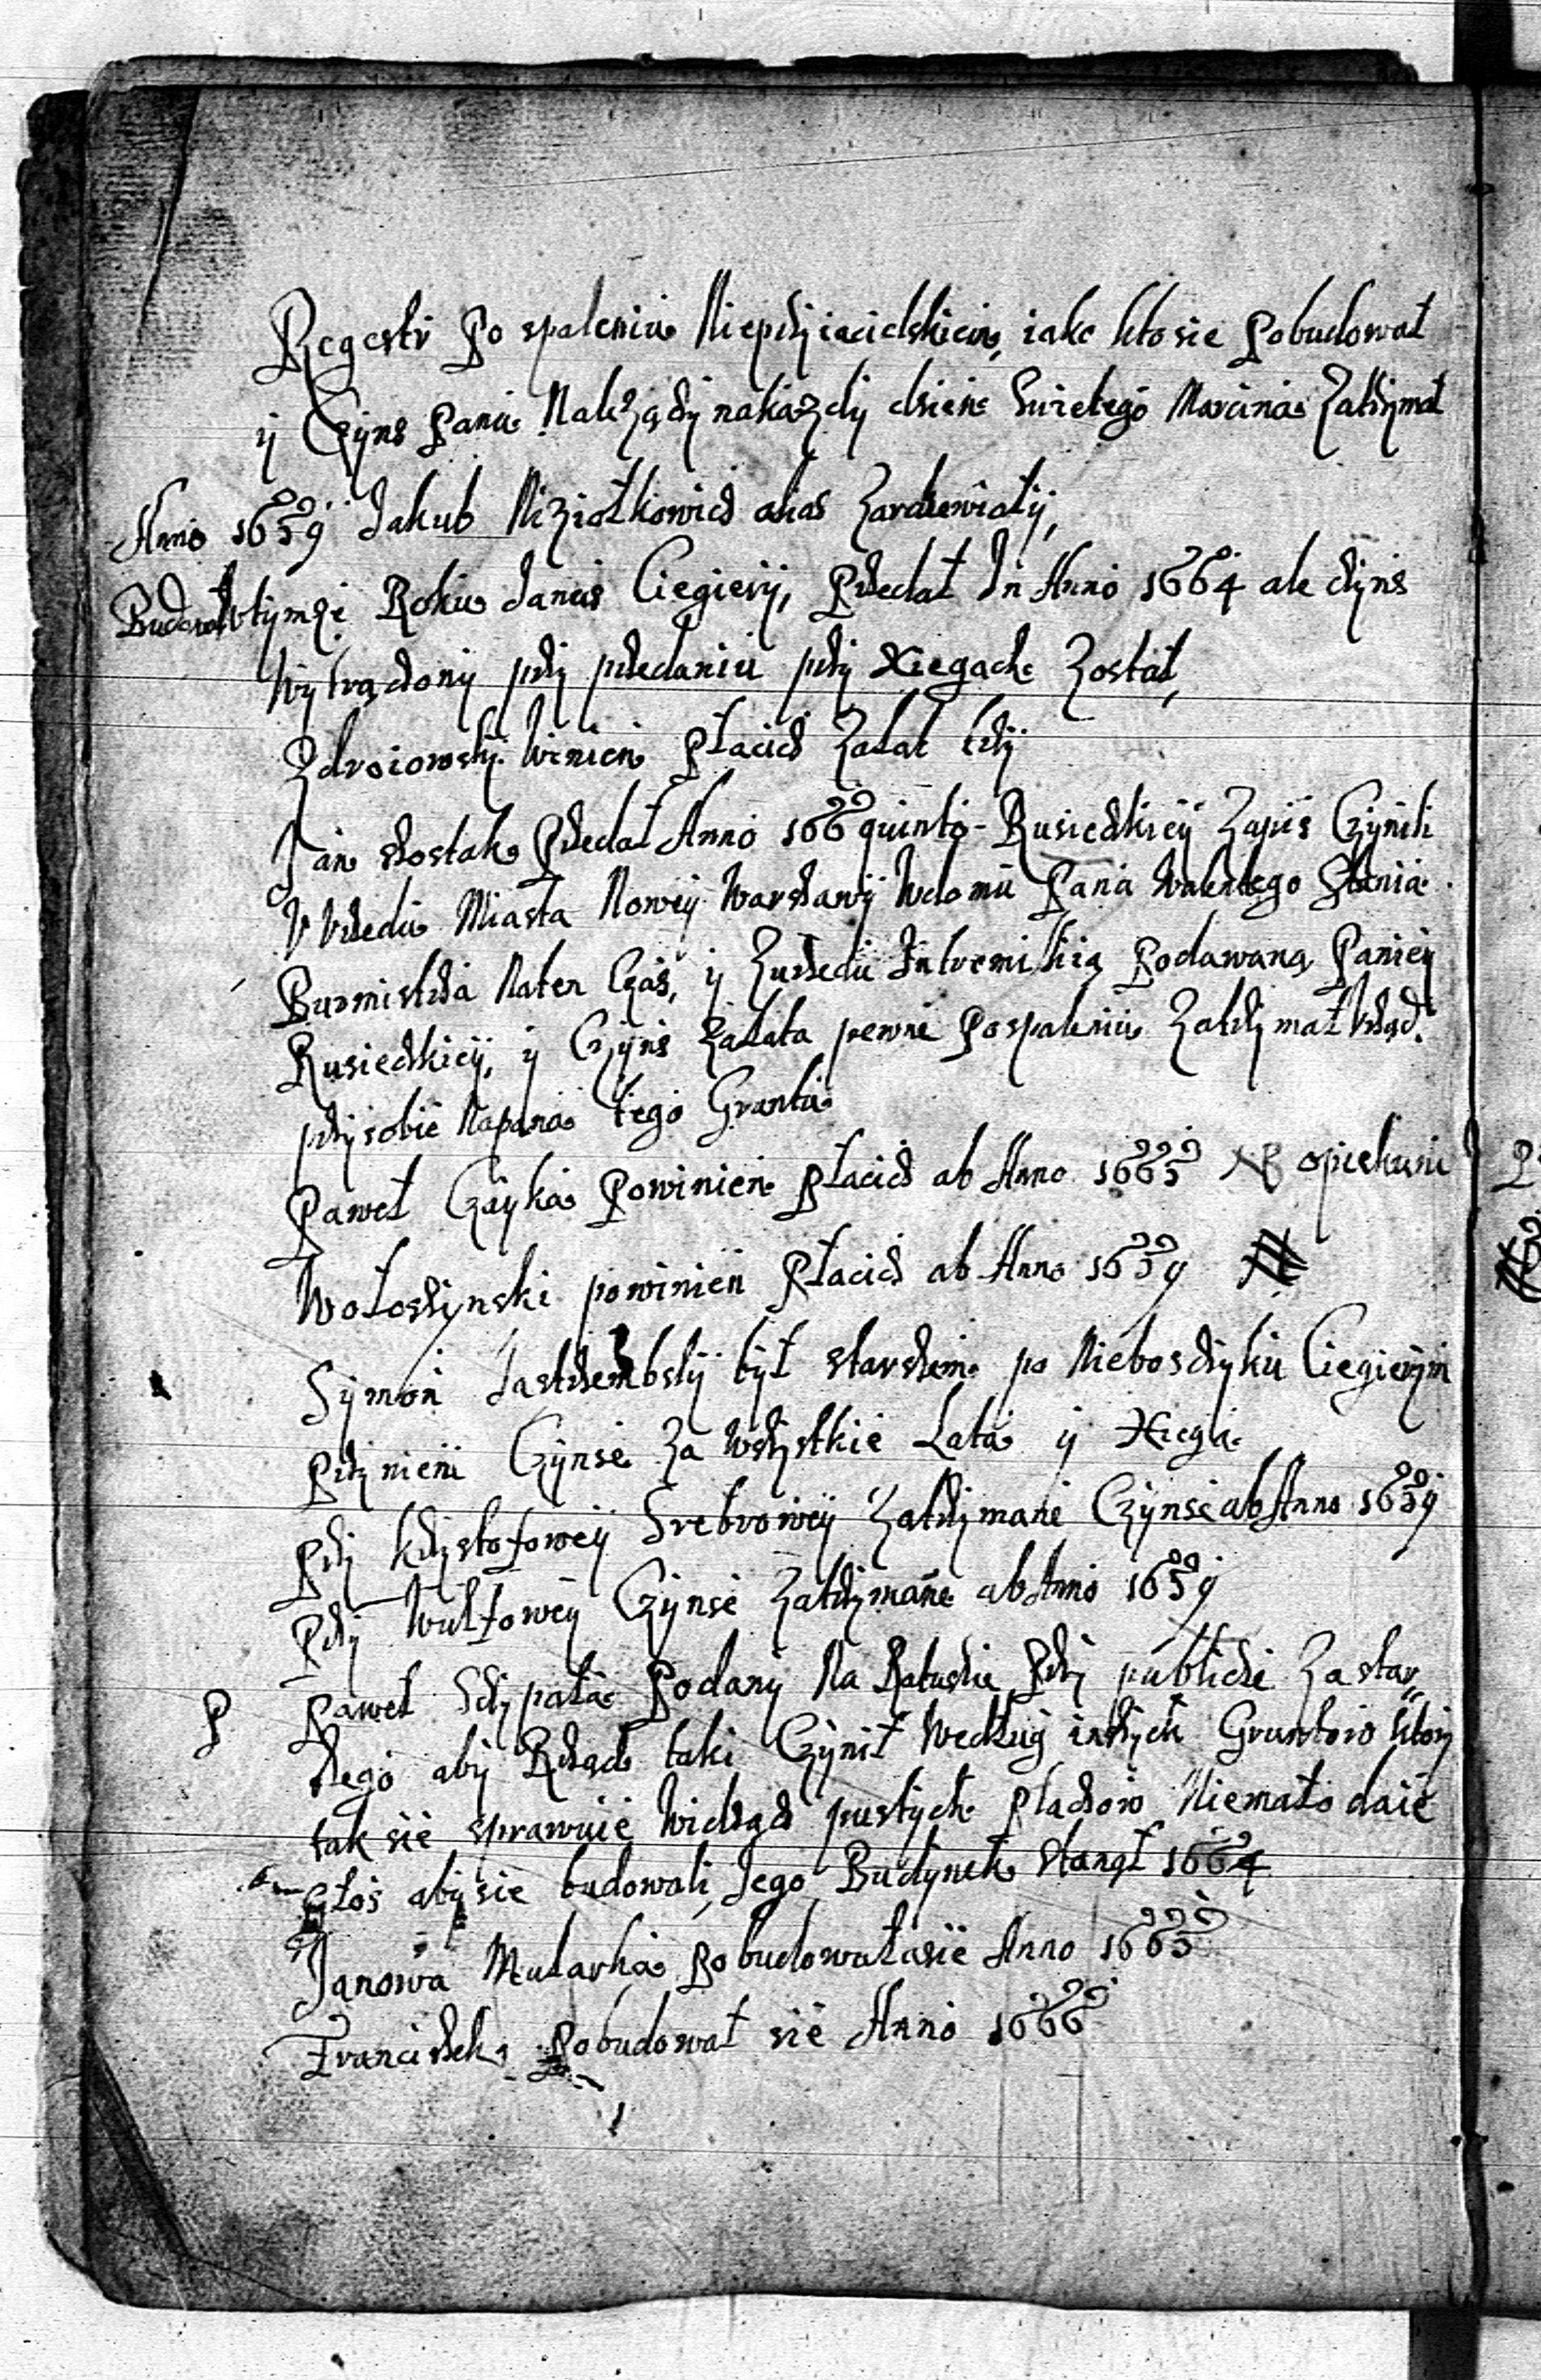 Regestr Po spaleniu Nieprziacielskiem, iako kto sie Pobudował
y Czyns Panu Należący na każdy dzien Swietego Marcina Zatrzymał
Anno 1659 Jakub Niziołkowicz alias
Budował tymże Roku Janus Ciegiery, Przedał In Anno 1664 ale czyns
Wytrączony przy przedaniu przy Xiegach Został,
Zdroiowsky Winien Płacicz Zalat trzy
Jan szostak Przedał Anno 166 quinto Rusieckiey Zapis Czynili
V Vrzedu Miasta Nowey Warszawy W domu Pana Walentego
Burmistrza Naten Czas, y Zurzedu Intromissią Podawaną Paniey
Rusieckiey, y Czyns Zalata pewne Pospaleniu Zatrzymał Vrząd
przysobie Napana tego Gruntu
Paweł Czayka Powinien Płacicz ab Anno 1665 NB opiekuni
Wołoszynski powinien Płacicz ab Anno 1659
Symon Jastrzembsky był starszem po Nieboszczyku Ciegierym
Przy niem Czynsze Za wszystkie Lata y Xiega
Przy Krzysztofowey Srebrowey Zatrzymane Czynsze ab Anno 1659
Przy Wulfowey Czynsze Zatrzymane ab Anno 1659
P Paweł Szczypała Podany Na Ratuszu Przy publicze Za star
szego aby Rząd taki Czynił Według inszych Gruntow ktory
tak sie sprawuie Widząc pustych Placzow Niemało daie
Głos aby sie budowali, Jego Budynek stanął 1664
Janowa Mularka Pobudowała sie Anno 1665
Franciszek Pobudował sie Anno 1666